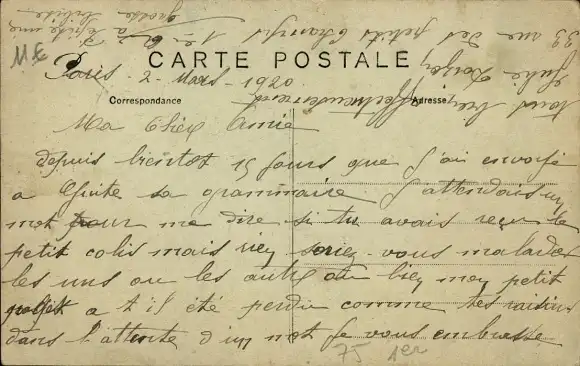 33 rue des petits Champs 1er
à Lefite une
grosse bise
Julie
tous bien affectueusement
ME
CARTE POSTALE
Paris - 2 - Mars - 1920
Correspondance
Adresse
Ma Chère Amie
depuis bientot 15 jours que j'ai envoyé
a Guite sa grammaire j'attendais un
mot pour me dire si tu avais reçu le
petit colis mais rien seriez-vous malades
les uns ou les autres ou bien mon petit
a t il été perdu comme tes raisins
dans l'attente d'un mot je vous embrasse
75 1er